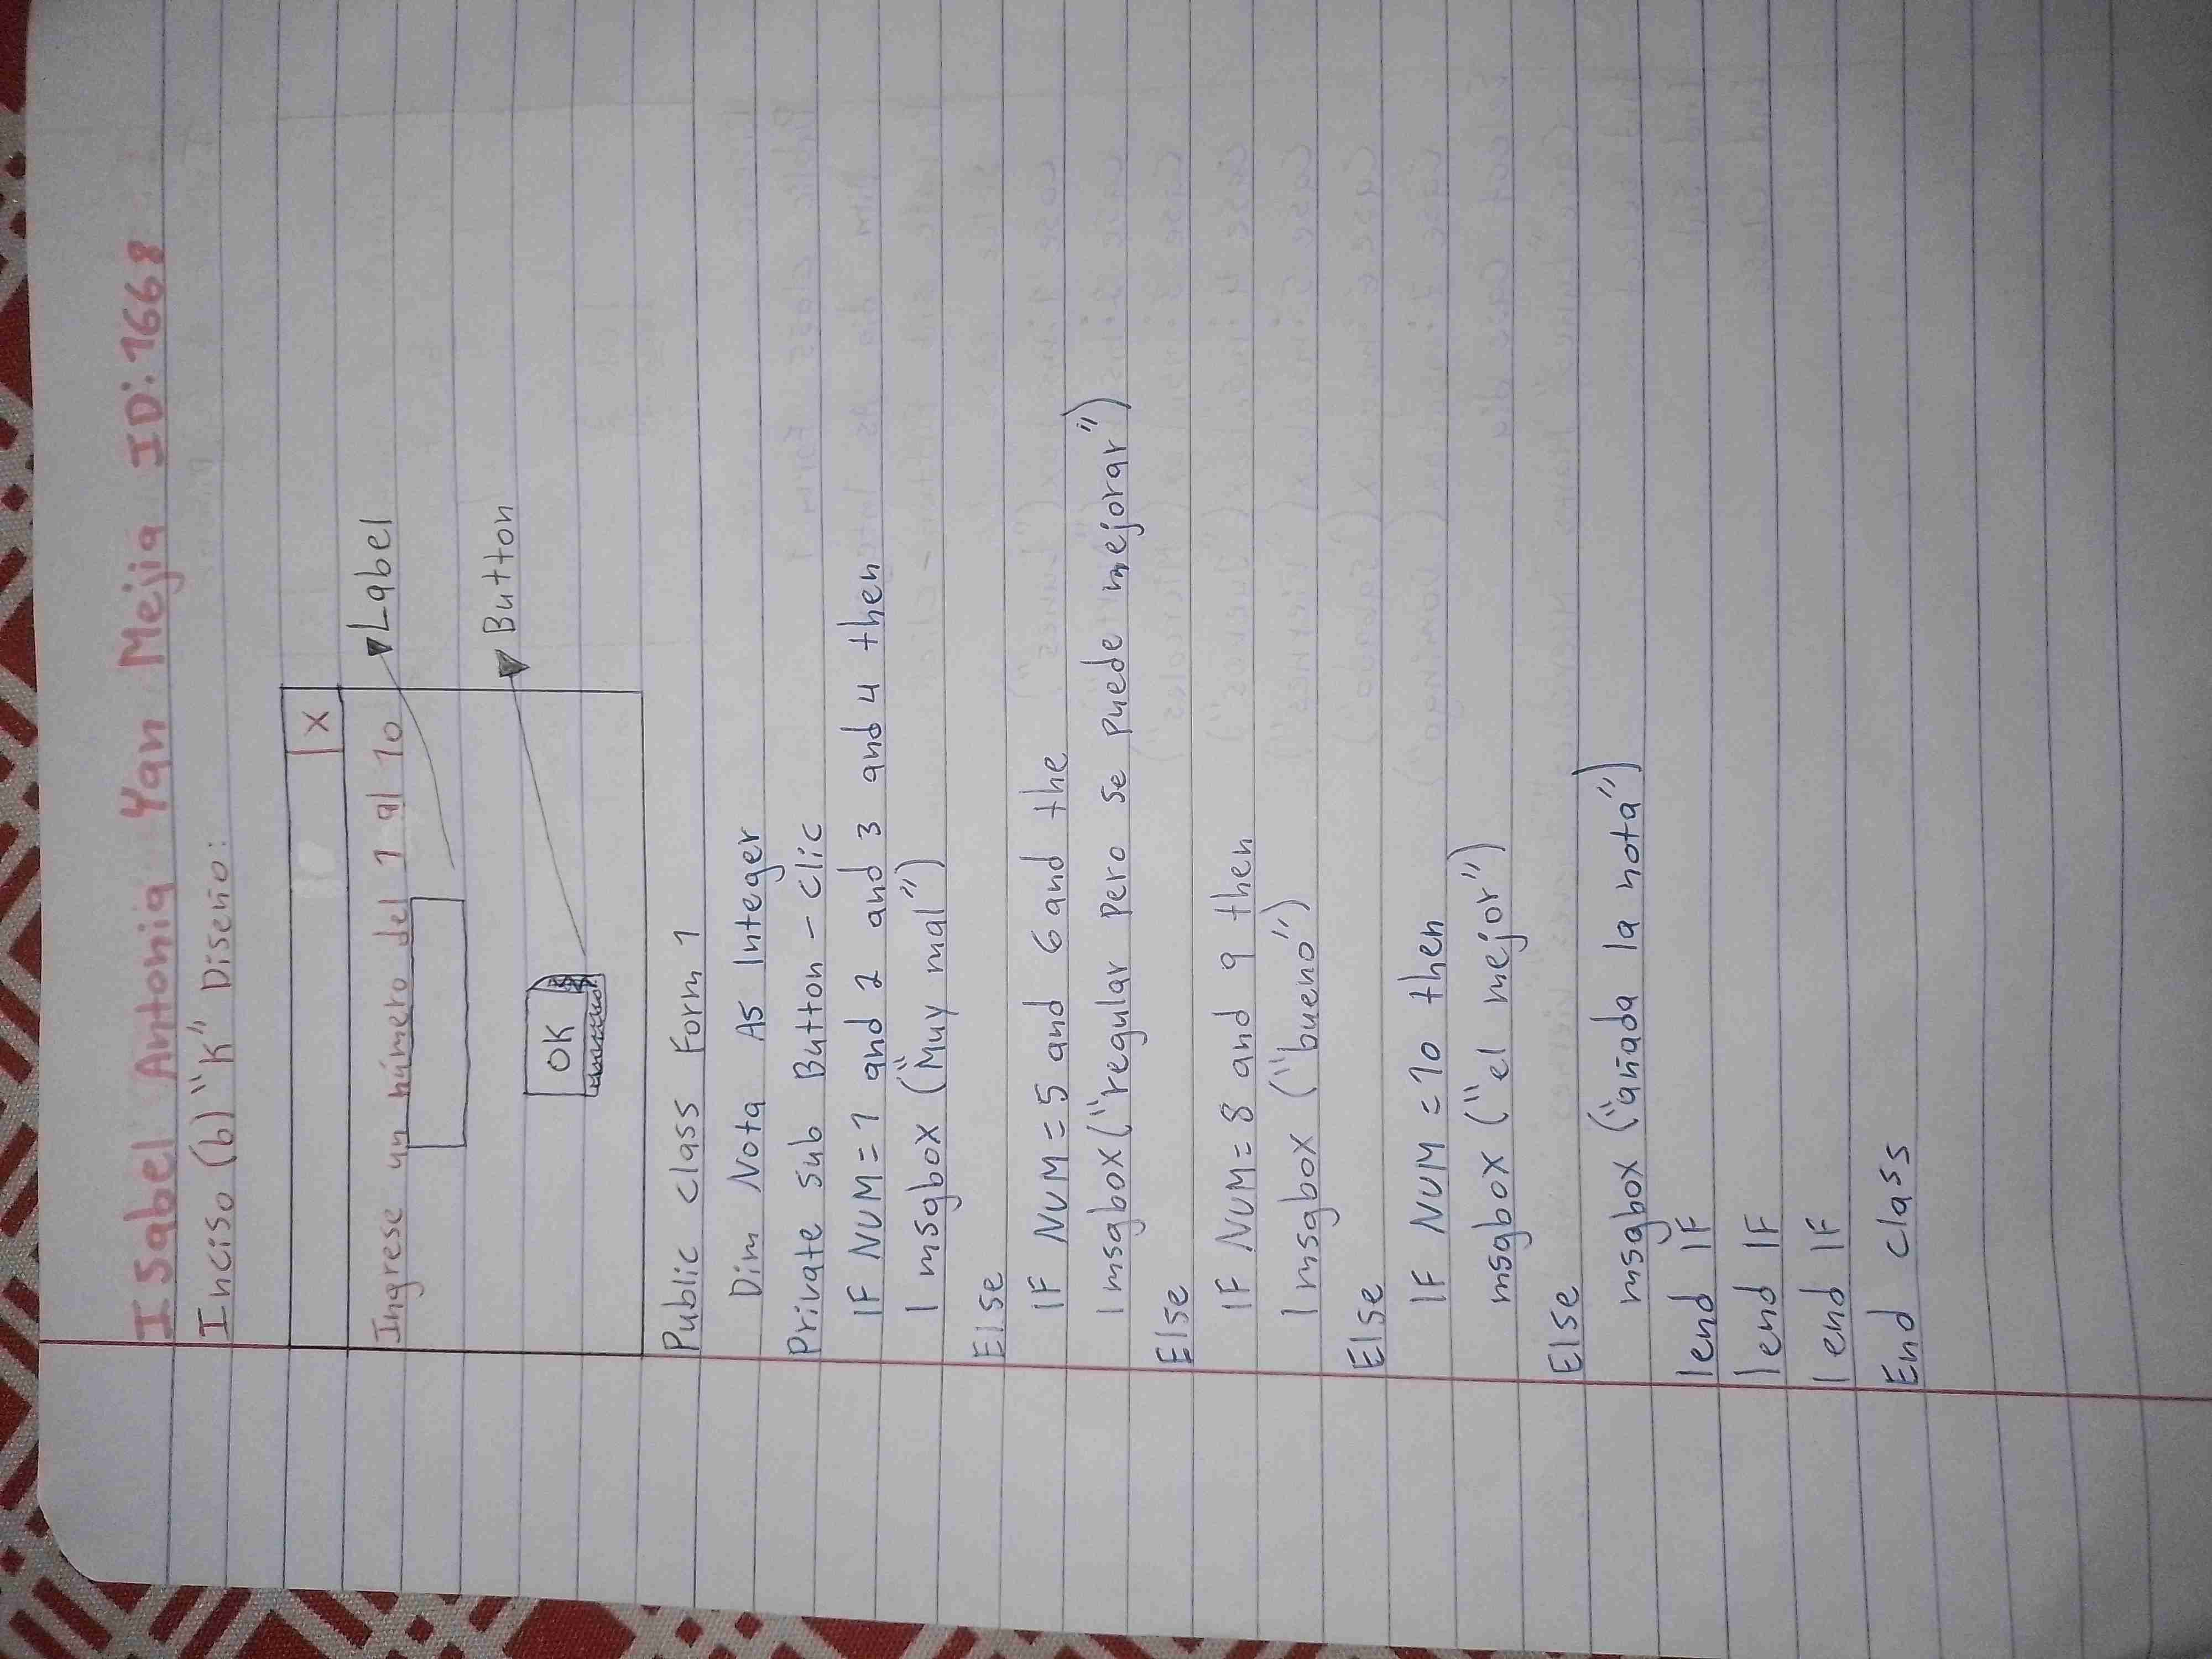 Isabel Antonia Yan Mejia ID: 1668
Inciso (b) "K" Diseño:
X
Ingrese un número del 1 al 10
Label
Button
OK
Public class Form 1
Dim Nota As Integer
Private sub Button - clic
IF NUM = 1 and 2 and 3 and 4 then
msgbox ("Muy mal")
Else
IF NUM = 5 and 6 and the
msgbox ("regular Pero se puede mejorar")
Else
IF NUM = 8 and 9 then
msgbox ("bueno")
Else
IF NUM = 10 then
msgbox ("el mejor")
Else
msgbox ("añada la nota")
end IF
end IF
end IF
End class